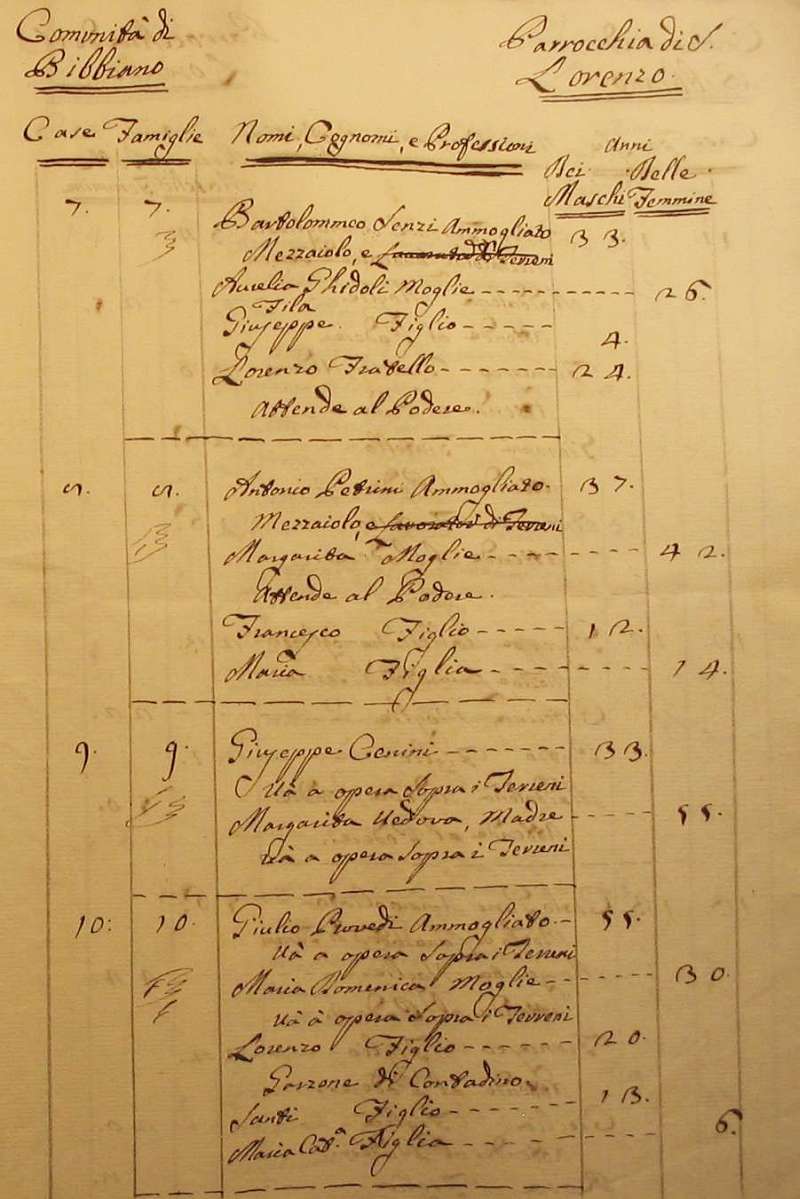 Comunità di
Bibbiano
Parrocchia di S.
Lorenzo.
Case Famiglie Nomi, Cognomi, e Professioni Anni
Dei Delle
Maschi Femmine
7. 7. Bartolommeo Senzi Ammogliato 33.
Mezzaiolo, e di Terreni
Aurelia Ghidoli Moglie 26.
Fila
Giuseppe. Figlio 4.
Lorenzo Fratello 24.
Attende al Podere.
Antonio Petrini Ammogliato. 37.
Mezzaiolo, e Lavorator di Terreni
Margarita Moglie 42.
Attende al Podere.
Francesco Figlio 12.
Maria Figlia 14.
9. 9. Giuseppe Cenini 33.
Và a opera Sopra i Terreni
Margarita Vedova, Madre 55.
Và a opera Sopra i Terreni
10: 10. Giulio Provedi Ammogliato. 55.
Và a opera Sopra i Terreni
Maria Domenica Moglie 30.
Và à opera Sopra i Terreni
Lorenzo Figlio 20.
Garzone di Contadino.
Santi Figlio 13.
Maria Cat.a Figlia 6.